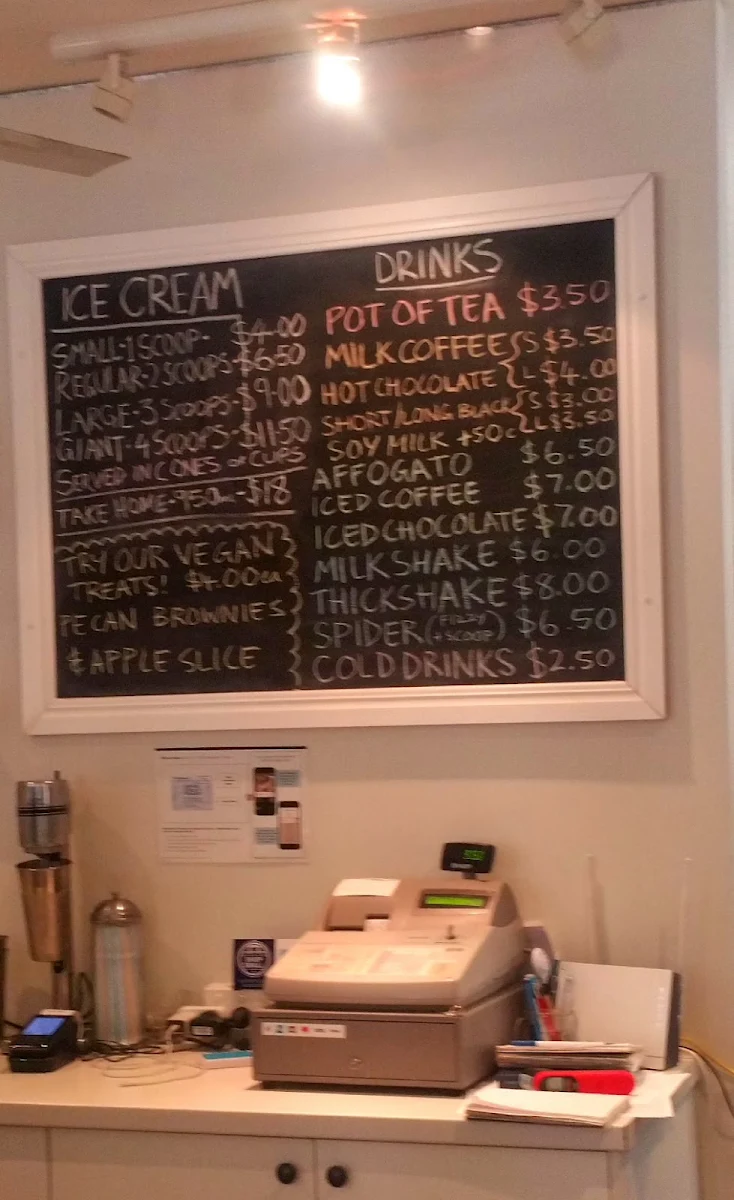 ICE CREAM
SMALL-1 SCOOP- $4.00
REGULAR-2 SCOOPS-$6.50
LARGE-3 SCOOPS-$9.00
GIANT-4 SCOOPS-$11.50
SERVED IN CONES or CUPS
TAKE HOME-950mL-$18
TRY OUR VEGAN
TREATS! $4.00ea
PECAN BROWNIES
& APPLE SLICE
DRINKS
POT OF TEA $3.50
MILK COFFEE S $3.50
HOT CHOCOLATE L $4.00
SHORT/LONG BLACK S $3.00
L $3.50
SOY MILK +50c
AFFOGATO $6.50
ICED COFFEE $7.00
ICED CHOCOLATE $7.00
MILKSHAKE $6.00
THICKSHAKE $8.00
SPIDER (FIZZY + SCOOP) $6.50
COLD DRINKS $2.50